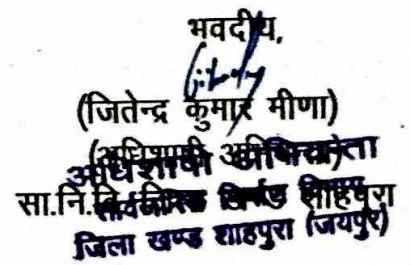 भवदीय,
(जितेन्द्र कुमार मीणा)
(अधिशाषी अभियन्ता)
अधिशाषी अभियन्ता
सा.नि.वि. खण्ड शाहपुरा
सार्वजनिक निर्माण विभाग
जिला खण्ड शाहपुरा (जयपुर)